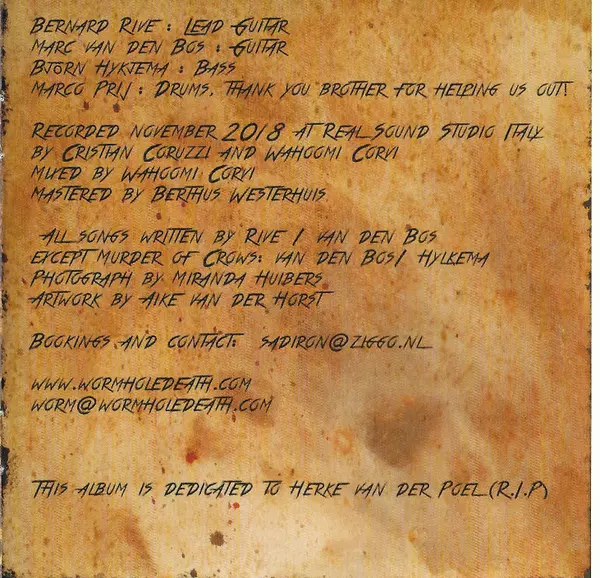 Bernard Rive : Lead Guitar
Marc van den Bos : Guitar
Björn Hykjema : Bass
Marco Prij : Drums, thank you brother for helping us out!
Recorded november 2018 at Real Sound Studio Italy
by Cristian Coruzzi and Wahoomi Corvi
Mixed by Wahoomi Corvi
Mastered by Berthus Westerhuis
All songs written by Rive / van den Bos
except Murder of Crows: van den Bos/ Hylkema
Photograph by Miranda Huibers
Artwork by Aike van der Horst
Bookings and contact: sadiron@ziggo.nl
www.wormholedeath.com
worm@wormholedeath.com
This album is dedicated to Herke van der Poel (R.I.P)